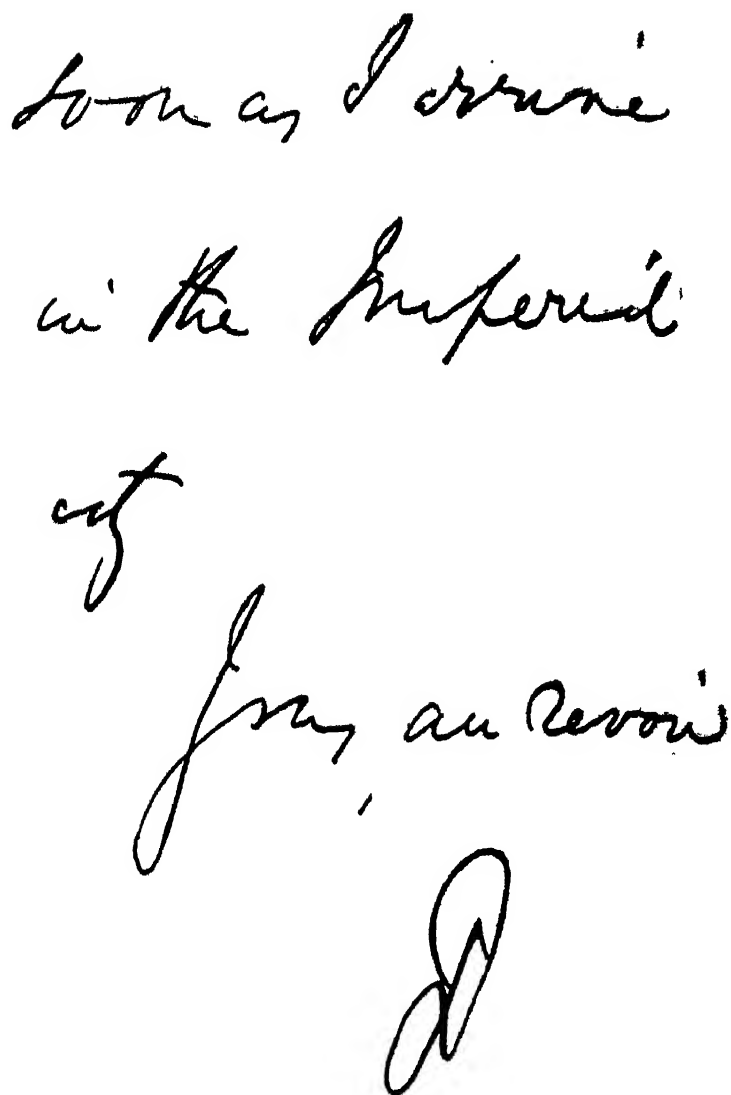 soon as I arrive
in the Imperial
city
au Revoir
D